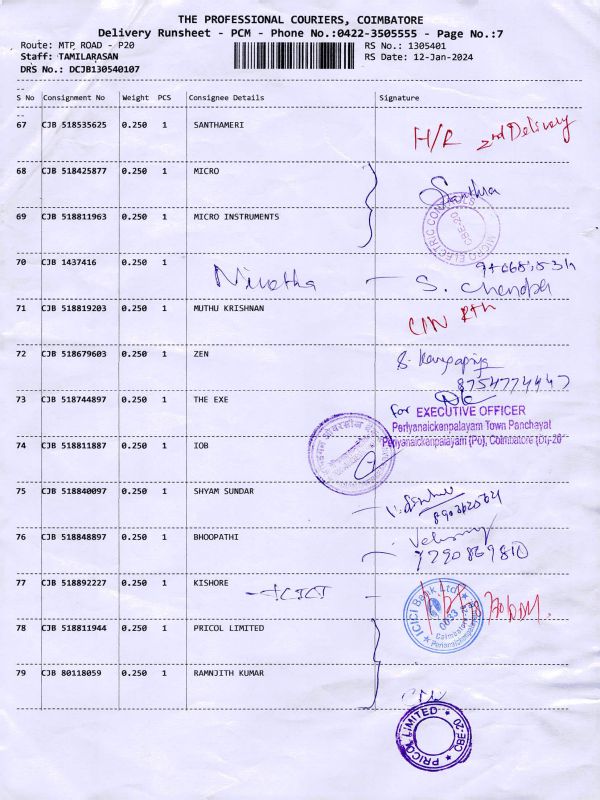 THE PROFESSIONAL COURIERS, COIMBATORE
Delivery Runsheet - PCM - Phone No.:0422-3505555 - Page No.:7
Route: MTP ROAD - P20 RS No.: 1305401
Staff: TAMILARASAN RS Date: 12-Jan-2024
DRS No.: DCJB130540107
S No Consignment No Weight PCS Consignee Details Signature
67 CJB 518535625 0.250 1 SANTHAMERI H/R 2nd Delivery
68 CJB 518425877 0.250 1 MICRO
69 CJB 518811963 0.250 1 MICRO INSTRUMENTS
MICRO ELECTRIC CONTROLS CBE-20
70 CJB 1437416 0.250 1 Nivetha S. Chendra
71 CJB 518819203 0.250 1 MUTHU KRISHNAN
72 CJB 518679603 0.250 1 ZEN
8754774447
73 CJB 518744897 0.250 1 THE EXE for EXECUTIVE OFFICER
Periyanaickenpalayam Town Panchayat
Periyanaickenpalayam (Po), Coimbatore (Dt)-20
74 CJB 518811887 0.250 1 IOB
75 CJB 518840097 0.250 1 SHYAM SUNDAR
76 CJB 518848897 0.250 1 BHOOPATHI
7790869810
77 CJB 518892227 0.250 1 KISHORE ICICI
ICICI Bank Ltd.
0033
Coimbatore
78 CJB 518811944 0.250 1 PRICOL LIMITED
79 CJB 80118059 0.250 1 RAMNJITH KUMAR
PRICOL LIMITED CBE-20